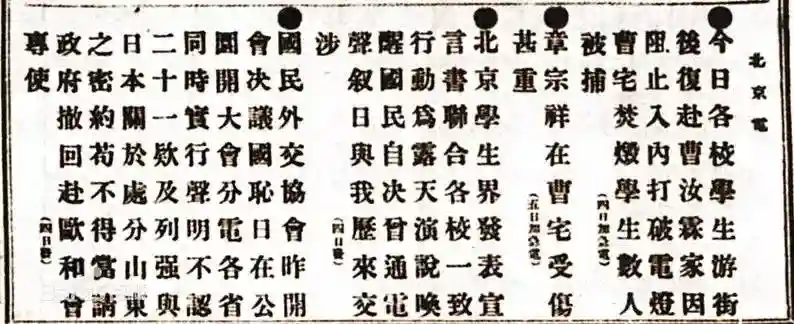 北京電
●今日各校學生游街
後復赴曹汝霖家因
阻止入內打破電燈
曹宅焚燬學生數人
被捕(四日加急電)
●章宗祥在曹宅受傷
甚重(五日加急電)
●北京學生界發表宣
言書聯合各校一致
行動爲露天演說喚
醒國民自决曾通電
聲叙日與我歷來交
涉(四日發)
●國民外交協會昨開
會决議國恥日在公
園開大會分電各省
同時實行聲明不認
二十一欵及列强與
日本關於處分山東
之密約苟不得當請
政府撤回赴歐和會
專使(四日發)